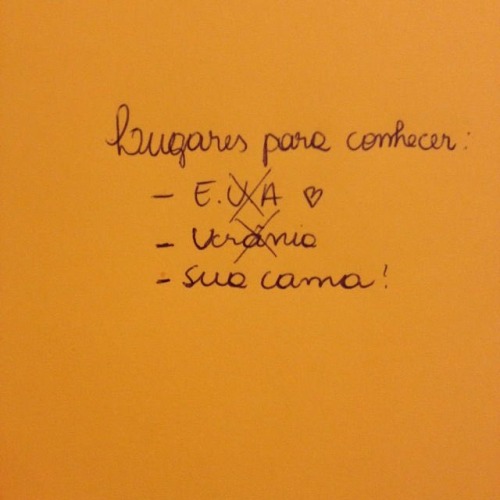 Lugares para conhecer:
- E.U.A ♡
- Ucrânia
- sua cama!